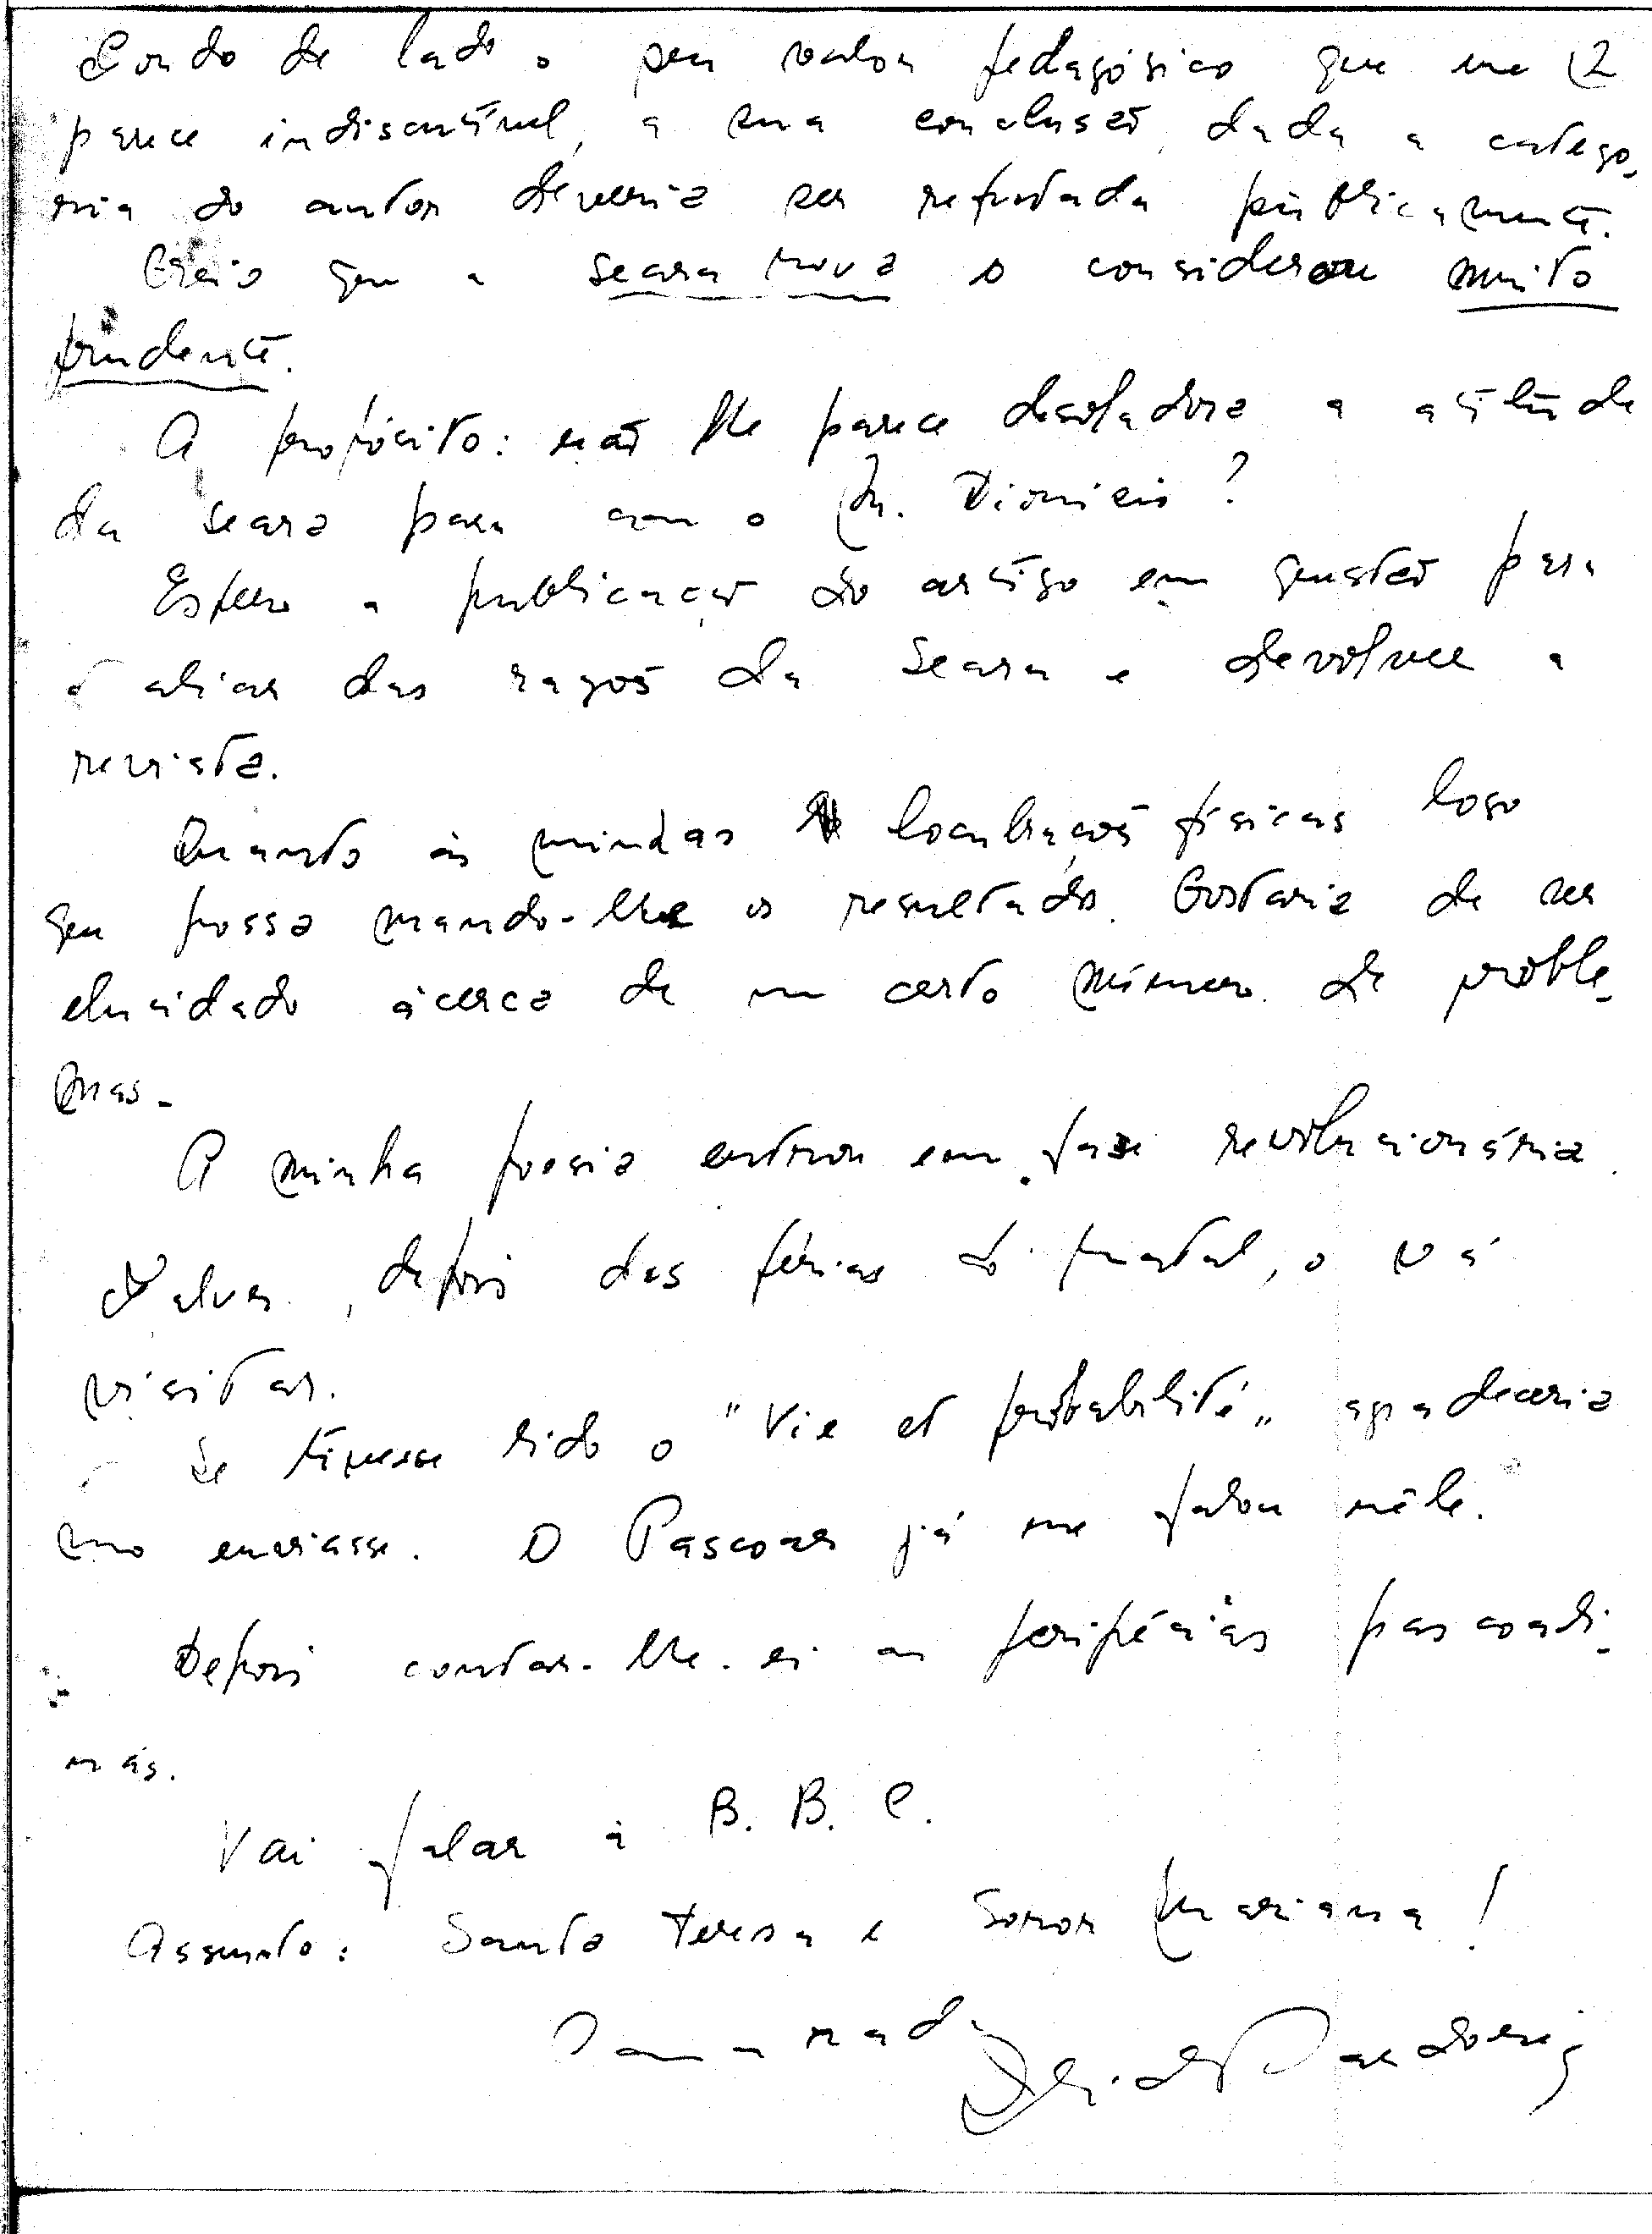 Pondo de lado o seu valor pedagógico que me (2
parece indiscutível, a sua conclusão, dada a catego-
ria do autor deveria ser refutada públicamente.
Creio que a Seara Nova o considerou muito
prudente.
A propósito: não lhe parece desoladora a atitude
da Seara para com o Dr. Dionisio?
Espero a publicação do artigo em questão para
avaliar das razões da Seara e devolver a
revista.
Quanto ás minhas locubrações físicas logo
que possa mando-lhe os resultados. Gostaria de ser
elucidado ácerca de um certo número de proble-
mas.
A minha poesia entrou em fase revolucionária.
Talvez, depois das férias do Natal, o vá
visitar.
Se tivesse lido o "Vie et probabilité" agradeceria
mo enviasse. O Pascoaes já me falou nêle.
Depois contar-lhe-ei as peripécias pascoali-
nas.
Vai falar á B. B. C.
Assunto: Santa Teresa e Soror Mariana!
Camarada